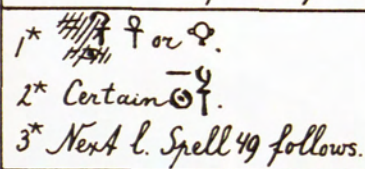 1* 𓋹 or
2* Certain
3* Next l. Spell 49 follows.